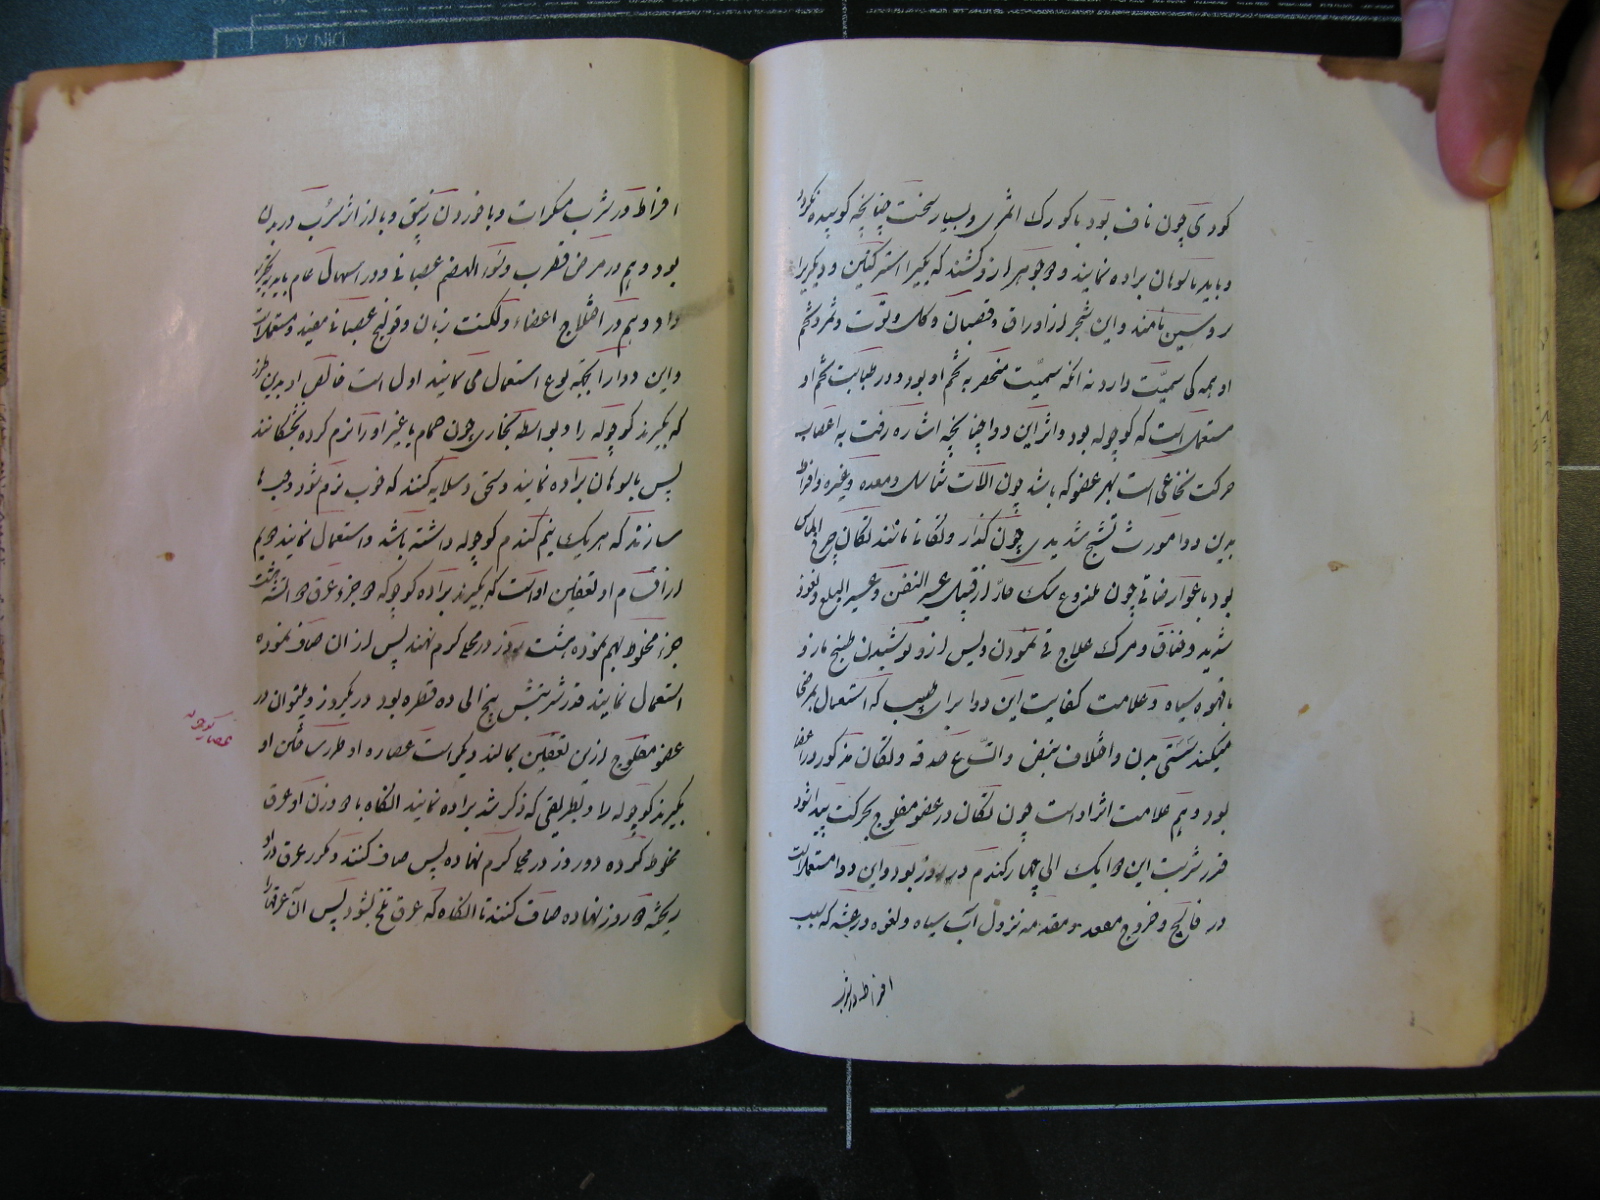 کودی چون ناف بود با کورک اثری و بسیار سخت چنانچه کوبیده نکردد
و باید با سوهان براده نمایند و دو جوهر ازو کشند که یکیرا استرکنین و دیکریرا
بروسین نامند و این شجر از اوراق و قضبان و کل و توت و ثمر و تخم
او همه کی سمیّت دارد نه انکه سمیّت منحصر به تخم او بود و در طبابت تخم او
مستعمل است که کوچوله بود و اثر این دوا چنانچه اشاره رفت به اعصاب
حرکت نخاعی است بهر عضو که باشد چون الات تناسل و معده و غیره و افراط
بدین دوا مورث تشنج شدیدی چون کذار و تکانی مانند تکان چرخ
بود با عوارضاتی چون ملزوع سک هار از قبیل عسر النفس و عسر البلع و لغوز
شدید و خناق و مرک علاج قی نمودن و پس ازو نوشیدن طبیخ مازو
با قهوه سیاه و علامت کفایت این دوا برای طبیب که استعمال بمرضا
میکند سستی بدن و اختلاف نبض و اتساع حدقه و تکان مذکور در اعضا
بود و هم علامت اثر او است چون تکان در عضو مفلوج بحرکت پیدا شود
قدر شربت این دوا یک الی چهار کندم در روز بود و این دوا مستعمل است
در فالج و خروج مقعد و مقدمه نزول آب سیاه و لغوه و رعشه که بسبب
افراط در شرب
افراط در شرب مسکرات و با خوردن زیبق و با از اثر سرب در بدن
بود و هم در مرض قطرب و سوء الهضم عصبانی و در اسهال عام باید بکار
داد و هم در اختلاج اعضاء و لکنت زبان و قولنج عصبانی مفید و مستعمل است
و این دوا را بچند نوع استعمال می نمایند اول است خالص او بدین طرز
که بکیرند کوچوله را و بواسطه بخاری چون حمام یا غیر او را نرم کرده بخشکانند
پس با سوهان براده نمایند و سحق و صلایه کنند که خوب نرم شود و حب ها
سازند که هر یک نیم کندم کوچوله داشته باشد و استعمال نمایند دویم
از اقسام او تعفین او است که بکیرند براده کوچوله دو جزو عرق دو اتشه هشت
جزء مخلوط بهم نموده هشت روز در محل کرم نهند پس از ان صاف نموده
استعمال نمایند قدر شربتش پنج الی ده قطره بود در یکروز و میتوان در
عضو مفلوج ازین تعفین بمالند دیکر است عصاره او طرز ساختن او
بکیرند کوچوله را و بطریقی که ذکر شد براده نمایند انکاه با دو وزن او عرق
مخلوط کرده دو روز در محل کرم نهاده پس صاف کنند و مکرر عرق در او
ریخته دو روز نهاده صاف کنند تا انکاه که عرق تلخ نشود پس آن عرقها را
عصاره کوچوله